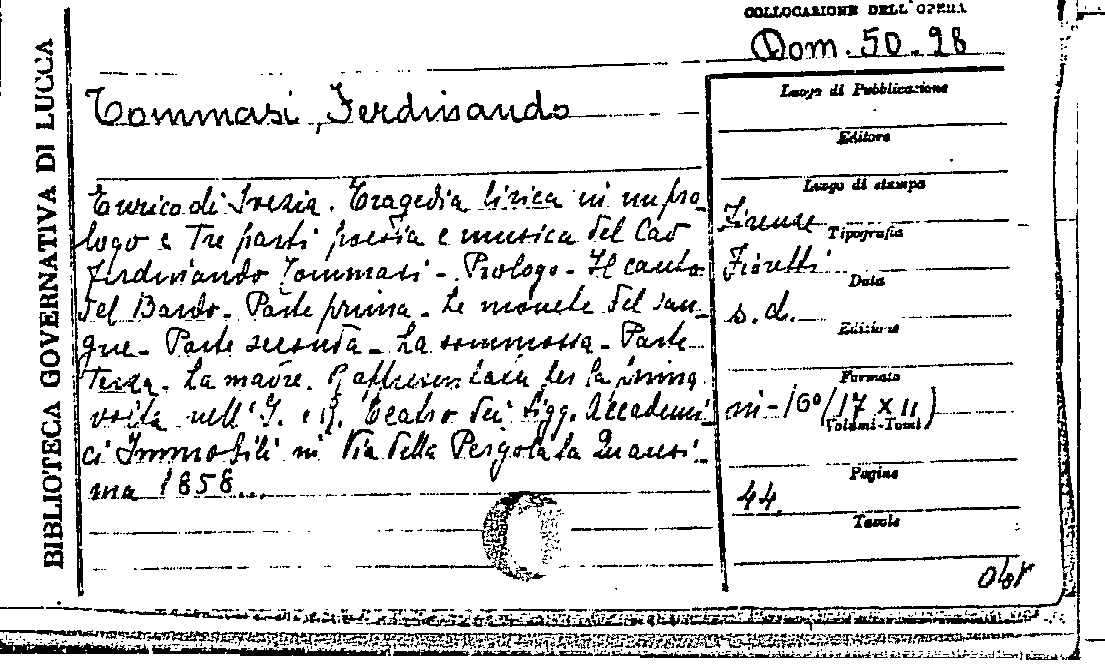 BIBLIOTECA GOVERNATIVA DI LUCCA
COLLOCAZIONE DELL'OPERA
Dom. 50.98
Tommasi, Ferdinando
Enrico di Svezia. Tragedia lirica in un pro-
logo e Tre parti poesia e musica del Cav
Ferdinando Tommasi - Prologo - Il canto
del Bardo - Parte prima - Le monete del san-
gue - Parte seconda - La sommossa - Parte
Terza - La madre. Rappresentata per la prima
volta nell'I. e R. Teatro dei Sigg. Accademi-
ci Immobili in Via della Pergola la Quaresi-
ma 1858...
Luogo di Pubblicazione
Editore
Luogo di stampa
Firenze
Tipografia
Fioretti
Data
s.d.
Edizione
Formato
in-16° (17 x 11)
Volumi-Tomi
Pagine
44
Tavole